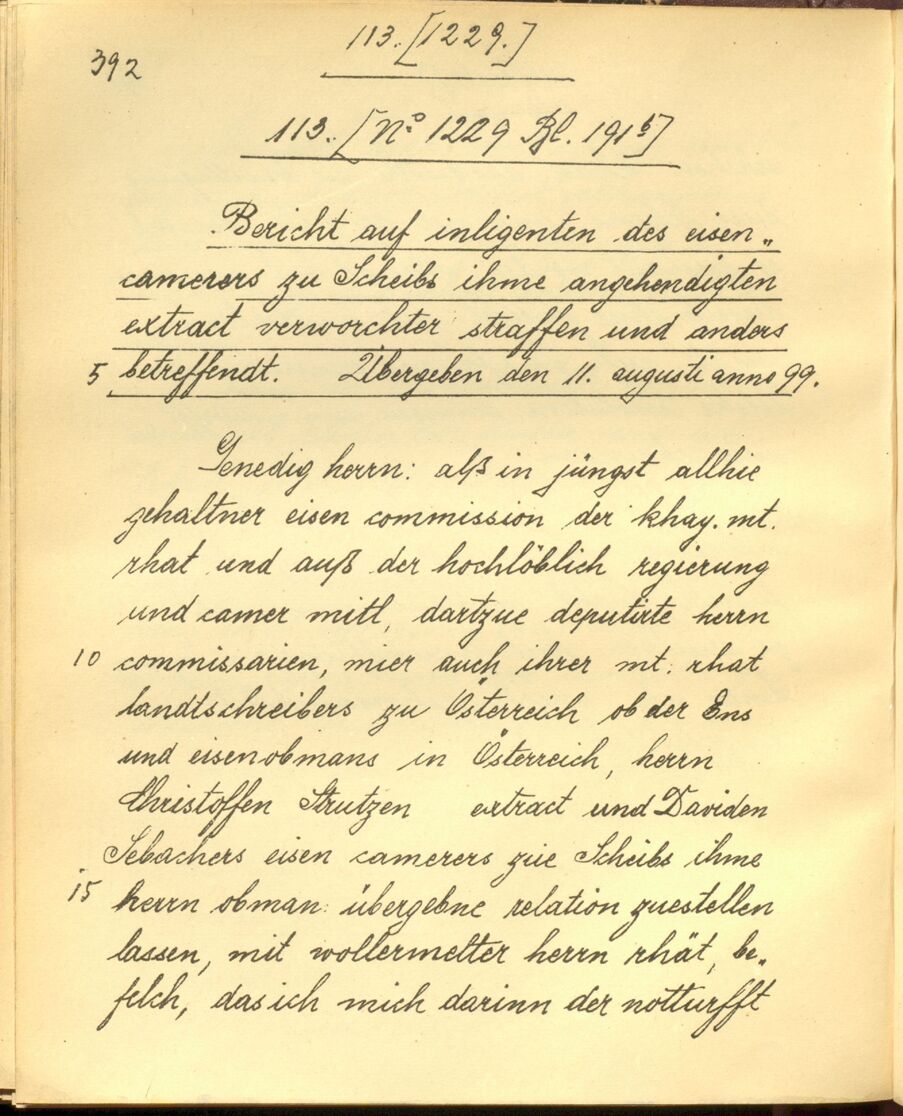 113. [1229.]
392
113. [No 1229 Bl. 191b]
Bericht auf inligenten des eisen„
camerers zu Scheibs ihme angehendigten
extract verworchter straffen und anders
5 betreffendt. Übergeben den 11. augusti anno 99.
Genedig herrn: alß in jüngst allhie
gehaltner eisen commission der khay. mt.
rhat und auß der hochlöblich regierung
und camer mitl, dartzue deputirte herrn
10 commissarien, mier auch ihrer mt: rhat
landtschreibers zu Österreich ob der Ens
und eisenobmans in Österreich, herrn
Christoffen Strutzen extract und Daviden
Sebachers eisen camerers zue Scheibs ihme
15 herrn obman: übergebne relation zuestellen
lassen, mit wollermelter herrn rhät, be„
felch, das ich mich darinn der notturfft